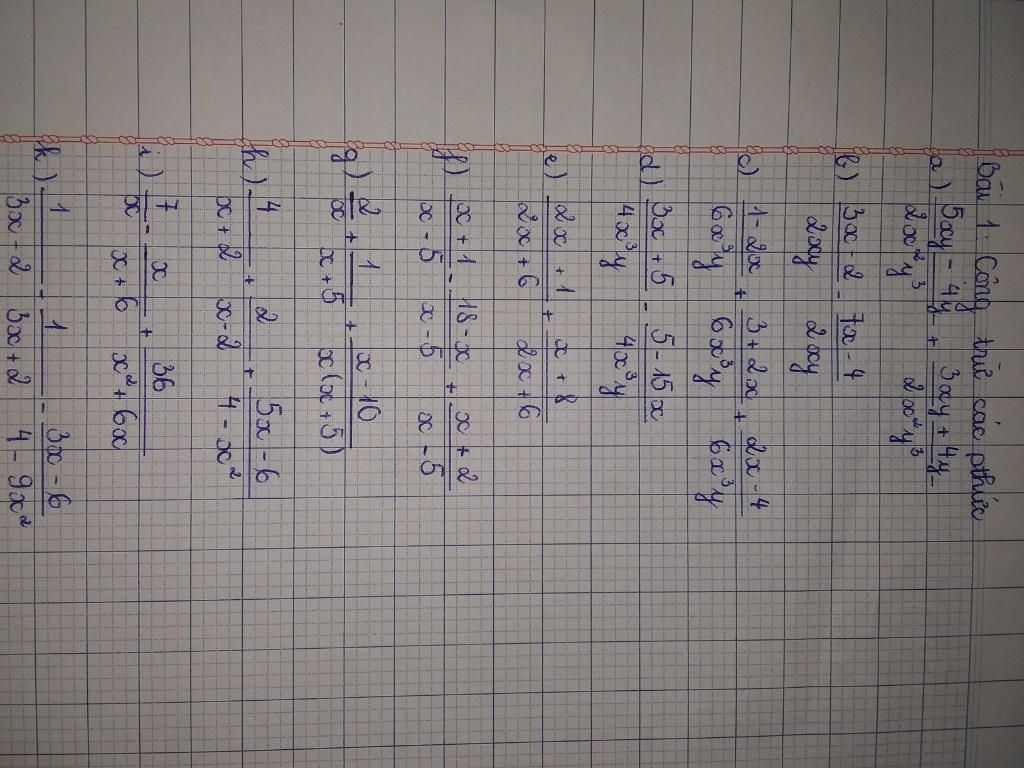 Bài 1: Cộng trừ các phân thức
a) (5xy - 4y)/(2x²y³) + (3xy + 4y)/(2x²y³)
b) (3x - 2)/(2xy) - (7x - 4)/(2xy)
c) (1 - 2x)/(6x³y) + (3 + 2x)/(6x³y) + (2x - 4)/(6x³y)
d) (3x + 5)/(4x³y) - (5 - 15x)/(4x³y)
e) (2x + 1)/(2x + 6) + (x + 8)/(2x + 6)
f) (x + 1)/(x - 5) - (18 - x)/(x - 5) + (x + 2)/(x - 5)
g) 2/x + 1/(x + 5) + (x - 10)/(x(x + 5))
h) 4/(x + 2) + 2/(x - 2) + (5x - 6)/(4 - x²)
i) 7/x - x/(x + 6) + 36/(x² + 6x)
k) 1/(3x - 2) + 1/(3x + 2) - (3x - 6)/(4 - 9x²)